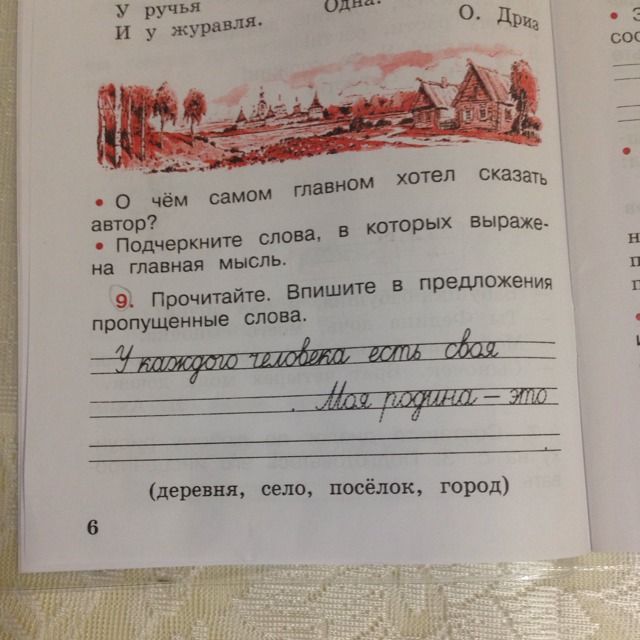 У ручья Одна.
И у журавля. О. Дриз
• О чём самом главном хотел сказать
автор?
• Подчеркните слова, в которых выраже-
на главная мысль.
9. Прочитайте. Впишите в предложения
пропущенные слова.
У каждого человека есть своя
. Моя родина – это
.
(деревня, село, посёлок, город)
6